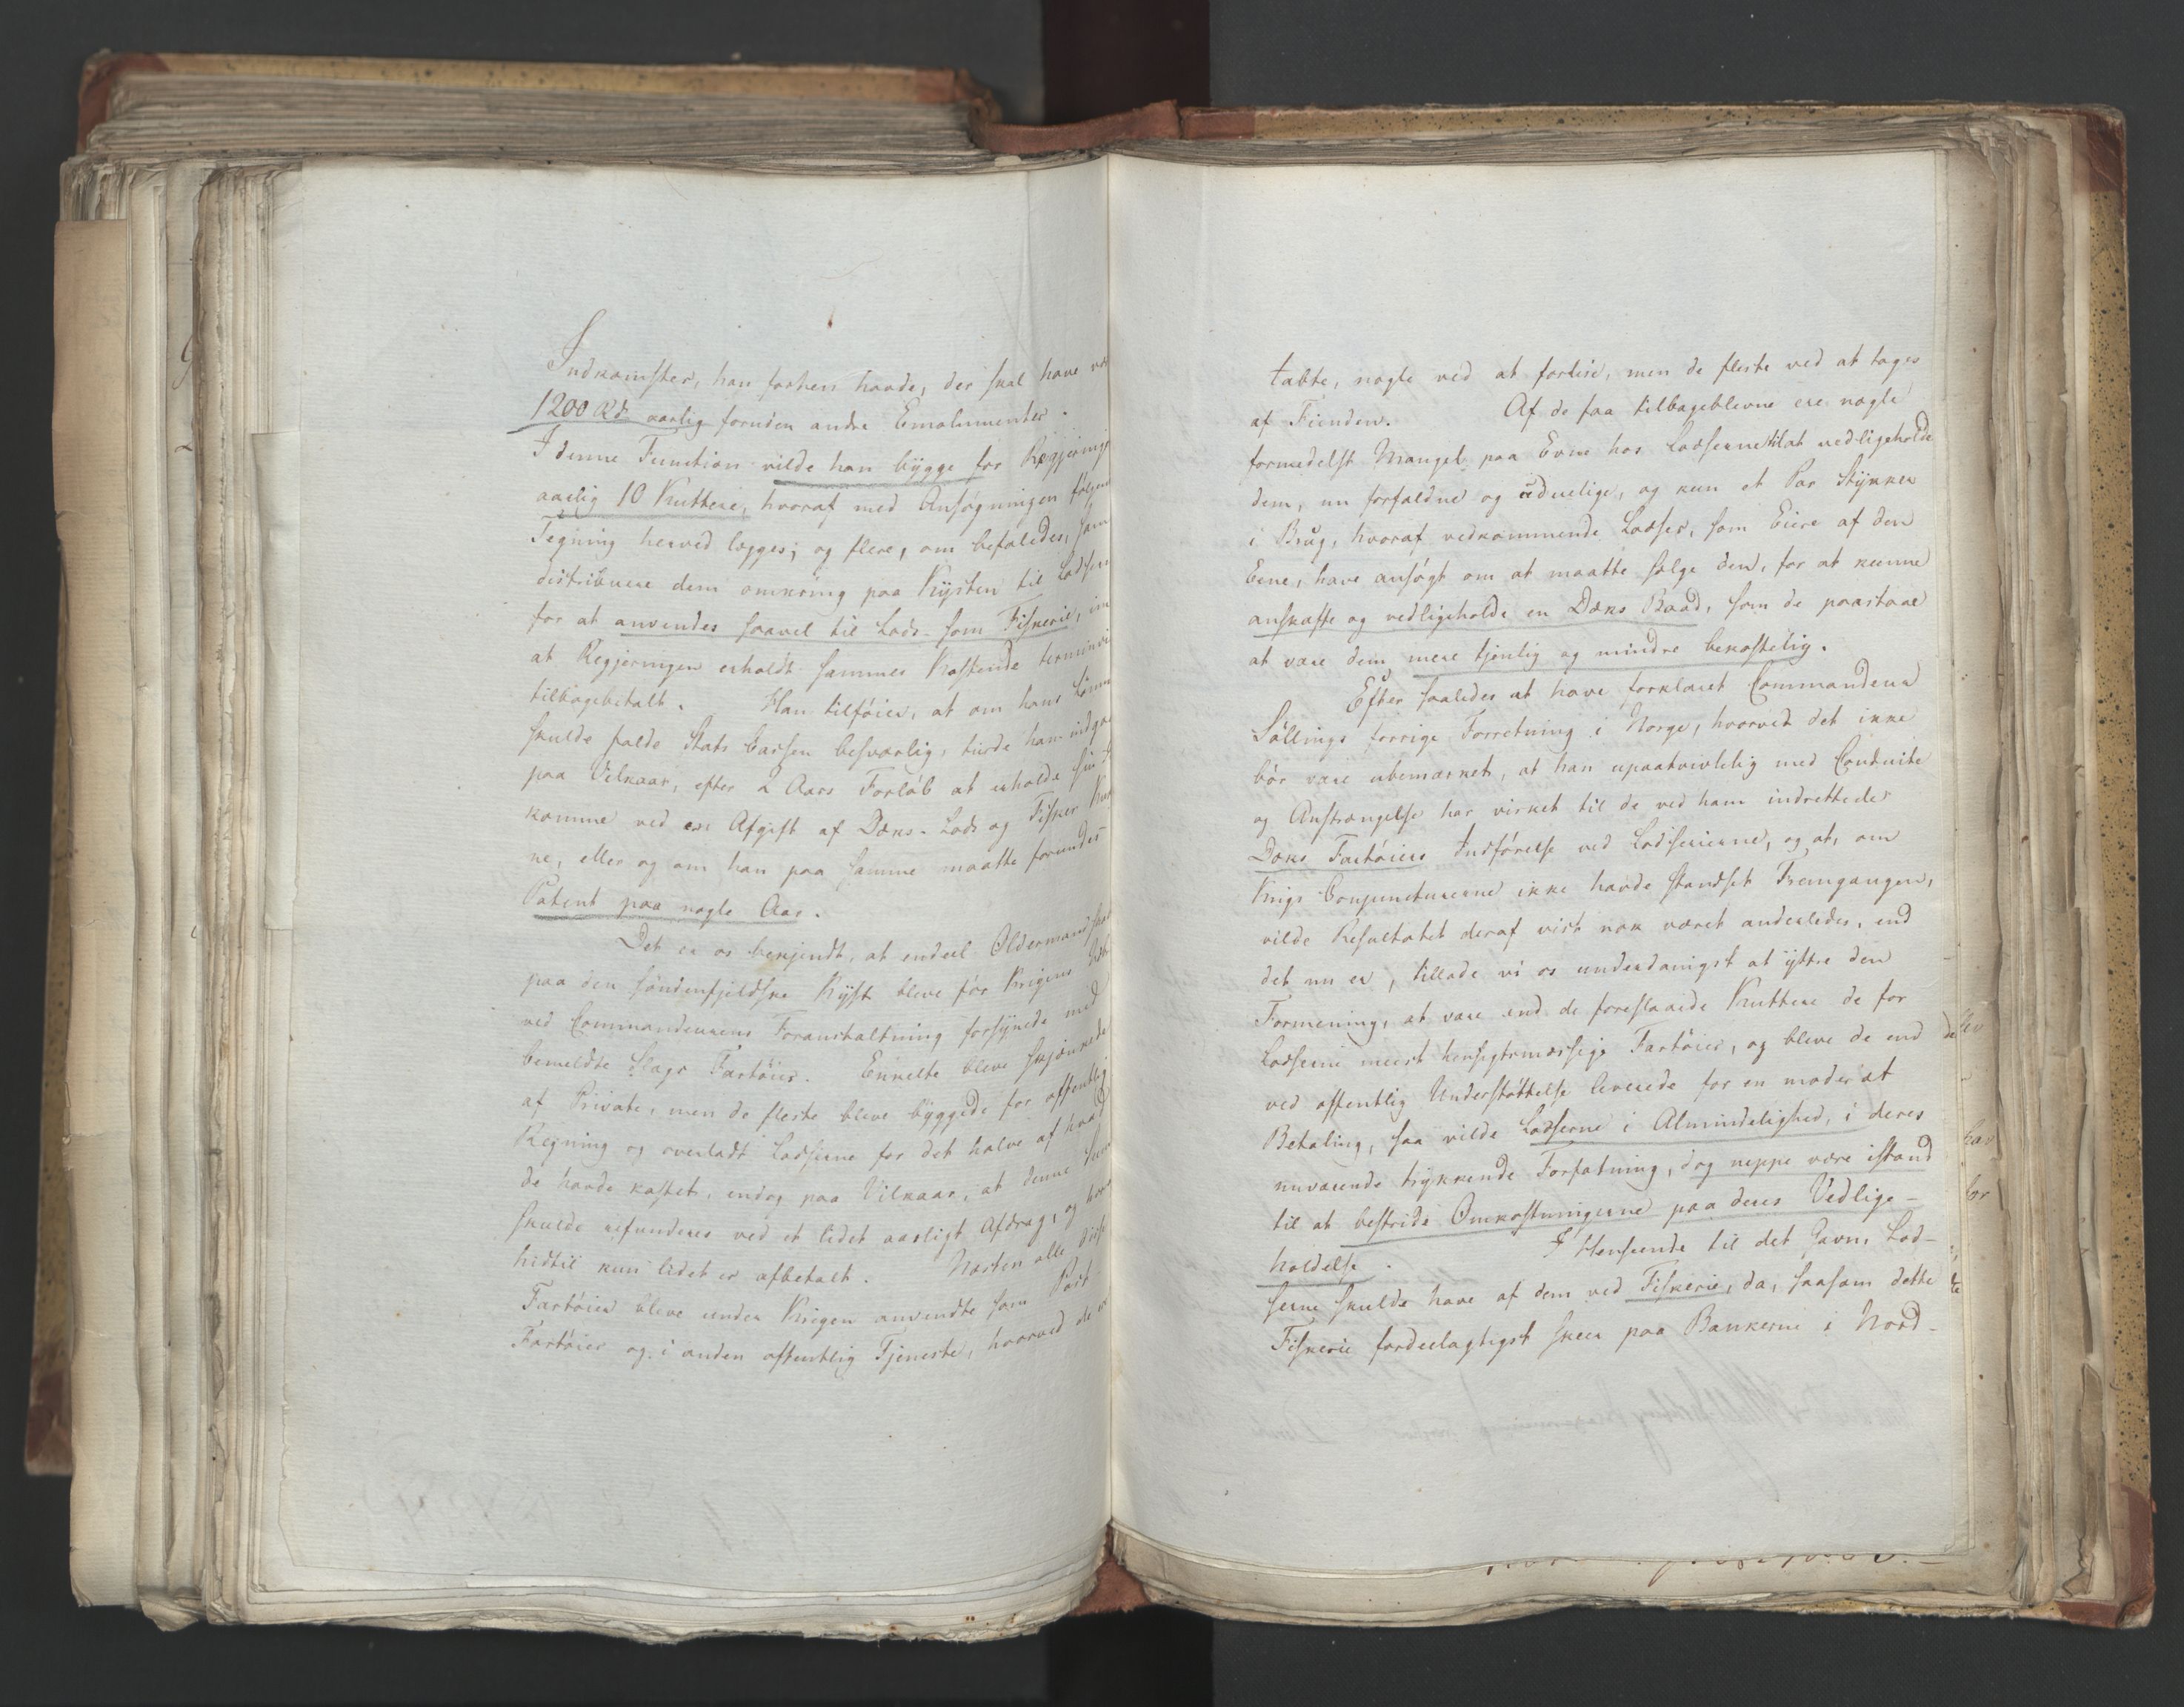 Indkomster, han forhen havde, der skal have
1200 Rd aarlig foruden andre Emolumenter.
I denne Function vilde han bygge for Regjerings
aarlig 10 Kuttere, hvoraf med Ansøgningen følgende
Tegning herved lægges; og flere, om befaledes, samt
distribuere dem omkring paa Kysten til Lodserne
for at anvendes saavel til Lods- som Fiskerie,
at Regjeringen erholdt sammes Kostende terminviis
tilbagebetalt. Han tilføier, at om hans Lønning
skulde falde Stats Cassen besværlig, turde han indgaae
paa Vilkaar, efter 2 Aars Forløb at erholde sin
komme ved en Afgift af Dæks- Lods og Fisker
ne, eller og om han paa samme maatte forundes
Patent paa nogle Aar.
Det er os bekjendt, at endeel Oldermandskaber
paa den søndenfjeldske Kyst bleve før Krigens
ved Commandeurens Foranstaltning forsynede med
bemeldte Slags Fartøier. Enkelte bleve skjænkede
af Private, men de fleste bleve byggede for offentlig
Regning og overladt Lodserne for det halve af hvad
de havde kostet, endog paa Vilkaar, at denne
skulde refunderes ved et lidet aarligt Afdrag, og
hidtil kun lidet er afbetalt. Næsten alle disse
Fartøier bleve under Krigen anvendte som Post-
Fartøier og i anden offentlig Tjeneste, hvorved de
tabte, nogle ved at forlise, men de fleste ved at tages
af Fienden. Af de faa tilbageblevne ere nogle
formedelst Mangel paa Evne hos Lodserne til at vedligeholde
dem, nu forfaldne og uduelige, og kun et Par Stykker
i Brug, hvoraf vedkommende Lodser, som Eiere af den
Eene, have ansøgt om at maatte sælge den, for at kunne
anskaffe og vedligeholde en Dæks Baad, som de paastaae
at være dem mere tjenlig og mindre bekostelig.
Efter saaledes at have forklaret Commandeur
Søllings forrige Forretning i Norge, hvorved det ikke
bør være ubemærket, at han upaatvivlelig med Conduite
og Anstrængelse har virket til de ved ham indrettede
Dæks Fartøiers Indførelse ved Lodserierne, og at, om
Krigs Conjuncturerne ikke havde standset Fremgangen,
vilde Resultatet deraf vist nok været anderledes, end
det nu er, tillade vi os underdanigst at yttre den
Formening, at vare end de foreslaaede Kuttere de for
Lodserne meest hensigtsmæssige Fartøier, og bleve de end
ved offentlig Understøttelse leverede for en moderat
Betaling, saa vilde Lodserne i Almindelighed, i deres
nuværende trykkende Forfatning, dog neppe være istand
til at bestride Omkostningerne paa deres Vedlige-
holdelse. I Henseende til det Gavn, Lod-
serne skulde have af dem ved Fiskerie, da, saasom dette
Fiskerie fordeelagtigst skeer paa Bankerne i Nord-